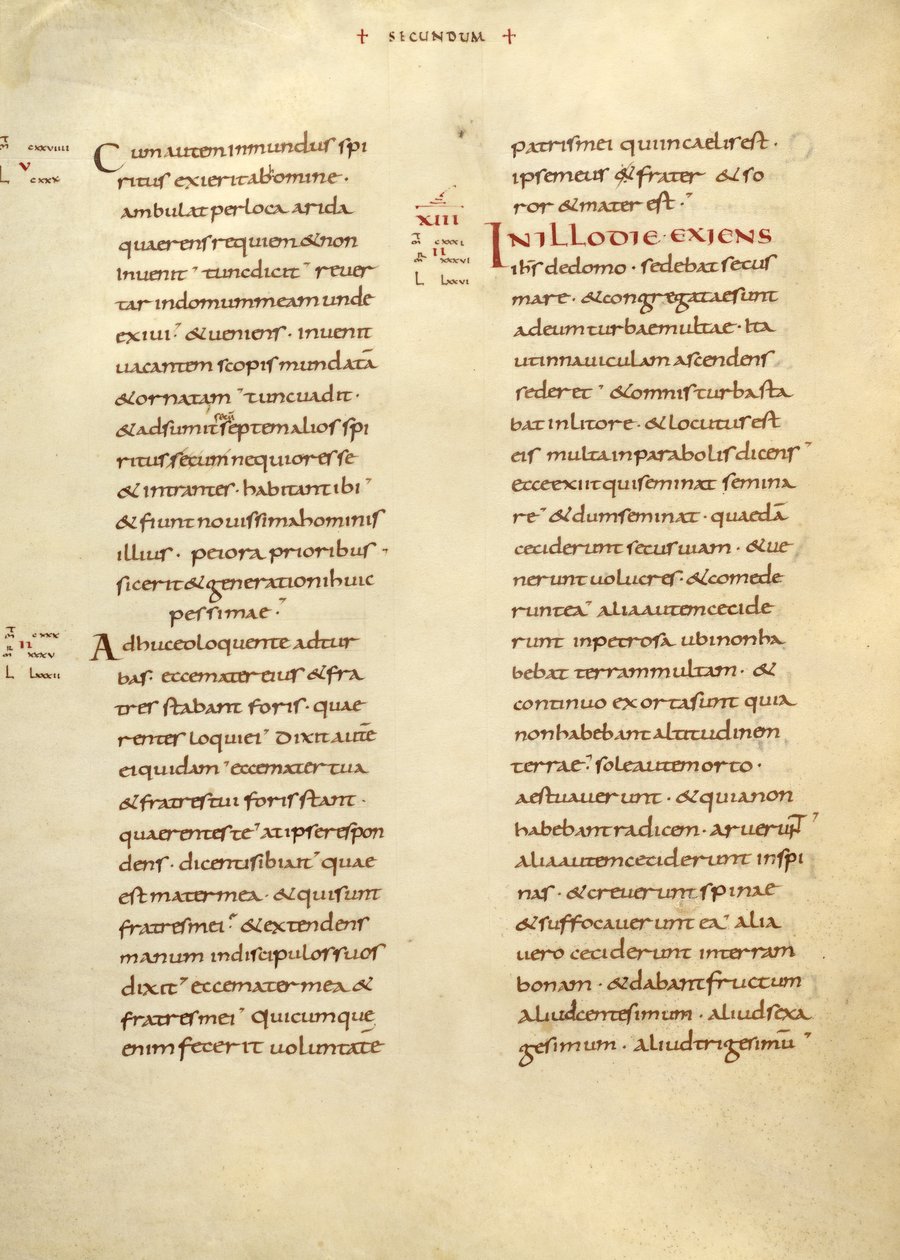 + SECUNDUM +
m̄ cxxviiii
v
L cxxx
Cum autem inmundus spi
ritus exierit abomine·
ambulat per loca arida
quaerens requiem & non
invenit tunc dicit rever
tar in domum meam unde
exivi & veniens· invenit
vacantem scopis mundatā
& ornatam tunc vadit·
& adsumit secū septem alios spi
ritus secum nequiores se
& intrantes· habitant ibi
& fiunt novissima hominis
illius· peiora prioribus
sic erit & generationi huic
pessimae
m̄ cxxx
ii
m̄ xxxv
L Lxxxii
Adhuc eo loquente ad tur
bas· ecce mater eius & fra
tres stabant foris· quae
rentes loqui ei Dixit autē
ei quidam ecce mater tua
& fratres tui foris stant·
quaerentes te at ipse respon
dens· dicenti sibi ait quae
est mater mea· & qui sunt
fratres mei & extendens
manum in discipulos suos
dixit ecce mater mea &
fratres mei Quicumque
enim fecerit voluntatē
patris mei qui in caelis est·
ipse meus & frater & so
ror & mater est·
XIII
m̄ cxxxi
ii
m̄ xxxvi
L Lxxvi
IN ILLO DIE· EXIENS
ih̄s de domo· sedebat secus
mare· & congregatae sunt
ad eum turbae multae· Ita
ut in naviculam ascendens
seder et & omnis turba sta
bat in litore· & locutus est
eis multa in parabolis dicens
ecce exiit qui seminat semina
re & dum seminat· quaedā
ceciderunt secus viam· & ve
nerunt volucres· & comede
runt ea alia autem cecide
runt in petrosa ubi non ha
bebat terram multam· &
continuo exorta sunt quia
non habebant altitudinem
terrae sole autem orto·
aestuaverunt· & quia non
habebant radicem· aruerunt
alia autem ceciderunt in spi
nas· & creverunt spinae
& suffocaverunt ea alia
vero ceciderunt in terram
bonam· & dabant fructum
aliud centesimum· aliud sexa
gesimum· aliud trigesimū